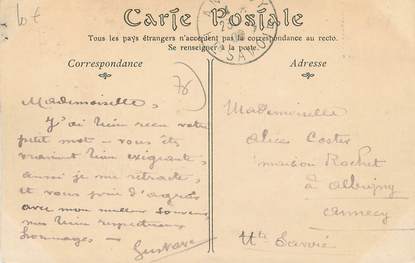 lot
Carte Postale
Tous les pays étrangers n'acceptent pas la correspondance au recto.
Se renseigner à la poste.
Correspondance
Mademoiselle,
J'ai bien reçu votre
petit mot - vous êts
vraiment bien exigeante,
aussi je me rétracte,
et vous prie d'agréer
avec mon meilleur souvenir
mes bien respectueux
hommages -
Gustave
Adresse
Mademoiselle
Alice Coster
maison Rochet
à Albigny
Annecy
Hte Savoie